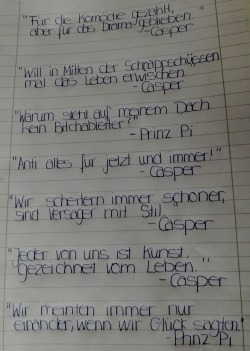 "Für die Komödie gezahlt,
aber für das Drama geblieben."
- Casper
"Will in Mitten der Schnappschüssen
mal das Leben erwischen
- Casper
"Warum steht auf meinem Dach
kein Bitchableiter?"
- Prinz Pi
"Anti alles für jetzt und immer!"
- Casper
"Wir scheitern immer schöner,
sind Versager mit Stil.
- Casper
"Jeder von uns ist Kunst.
gezeichnet vom Leben."
- Casper
"Wir meinten immer nur
einander, wenn wir Glück sagten."
- Prinz Pi